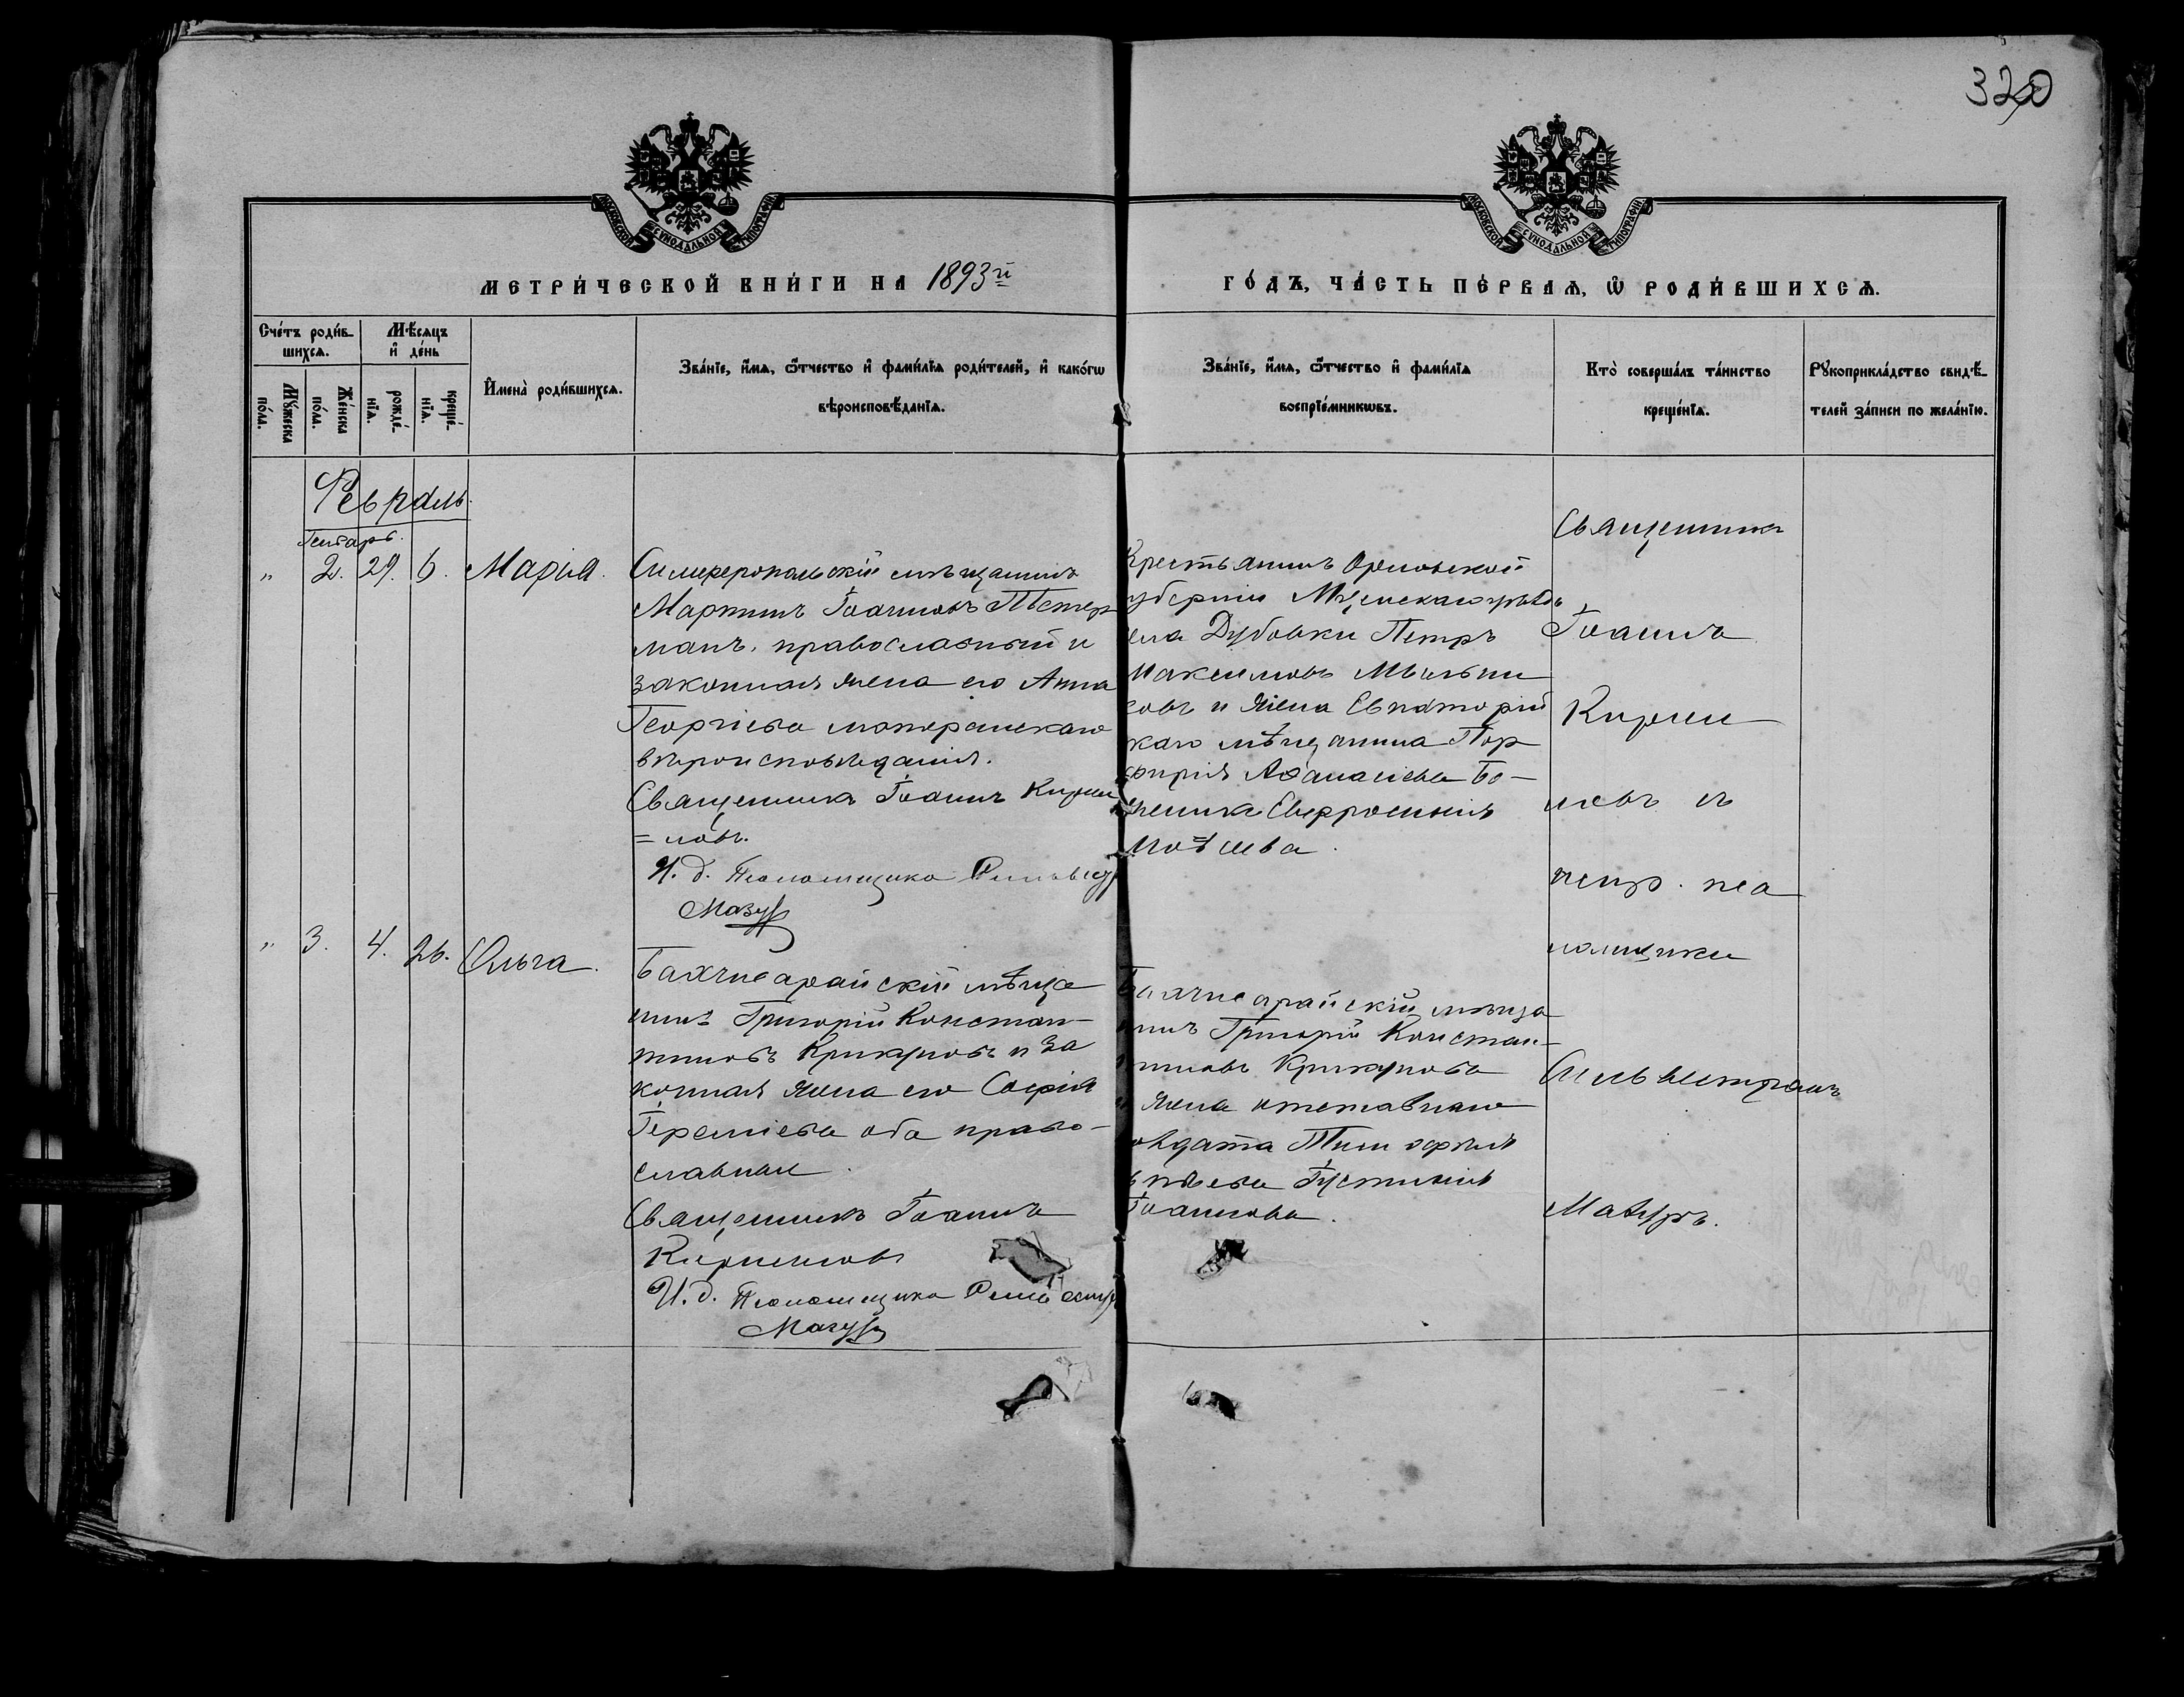 320
МОСКОВСКОЙ СѴНОДАЛЬНОЙ ТИПОГРАФІИ
МОСКОВСКОЙ СѴНОДАЛЬНОЙ ТИПОГРАФІИ
МЕТРИ́ЧЕСКОЙ КНИ́ГИ НА 1893й
ГО́ДЪ, ЧА́СТЬ ПЕ́РВАѦ, Ѡ҆ РОДИ́ВШИХСѦ.
Сче́тъ роди́в-
шихсѧ.
Мꙋ́жеска
по́ла.
Же́нска
по́ла.
Мѣ́сѧцъ
и҆ де́нь
рожде́-
нїѧ.
креще́-
нїѧ.
И҆мена̀ роди́вшихсѧ.
Зва́нїе, и҆́мѧ, ѻ҆́тчество и҆ фами́лїѧ роди́телей, и҆ како́гѡ
вѣроисповѣ́данїѧ.
Зва́нїе, и҆́мѧ, ѻ҆́тчество и҆ фами́лїѧ
воспрїе́мникѡвъ.
Кто̀ соверша́лъ та́инство
креще́нїѧ.
Рꙋкоприкла́дство свидѣ́-
телей за́писи по жела́нїю.
Февраль.
Генварь.
„ 2. 29. 6. Марія.
Симферопольскій мѣщанинъ
Мартинъ Іоанновъ Петер
манъ, православный и
законная жена его Анна
Георгіева лютеранскаго
вѣроисповѣданія.
Священникъ Іоаннъ Кирил
=ловъ.
И. д. Псаломщика
Мазуръ
Крестьянинъ Орловской
губерніи Мценскаго уѣзда
села Дубовки Петръ
Максимовъ Мыльни
ковъ и жена Евпаторій
скаго мѣщанина Пор
фирія Аѳанасіева Бо-
женика Евфросинія
Священникъ
Іоаннъ
Кирил
ловъ и
испр. пса
ломщика
Сильвестръ
Мазуръ.
„ 3. 4. 26. Ольга.
Бахчисарайскій мѣща
нинъ Григорій Констан-
тиновъ Крикуновъ и за
конная жена его Софія
Герасімова оба право-
славные.
Священникъ Іоаннъ
Кирилловъ
И. д. Псаломщика
Мазуръ
Бахчисарайскій мѣща
нинъ Григорій Констан-
тиновъ Крикуновъ
и жена отставнаго
солдата Тимофея
Іустинія
Іоаннова.